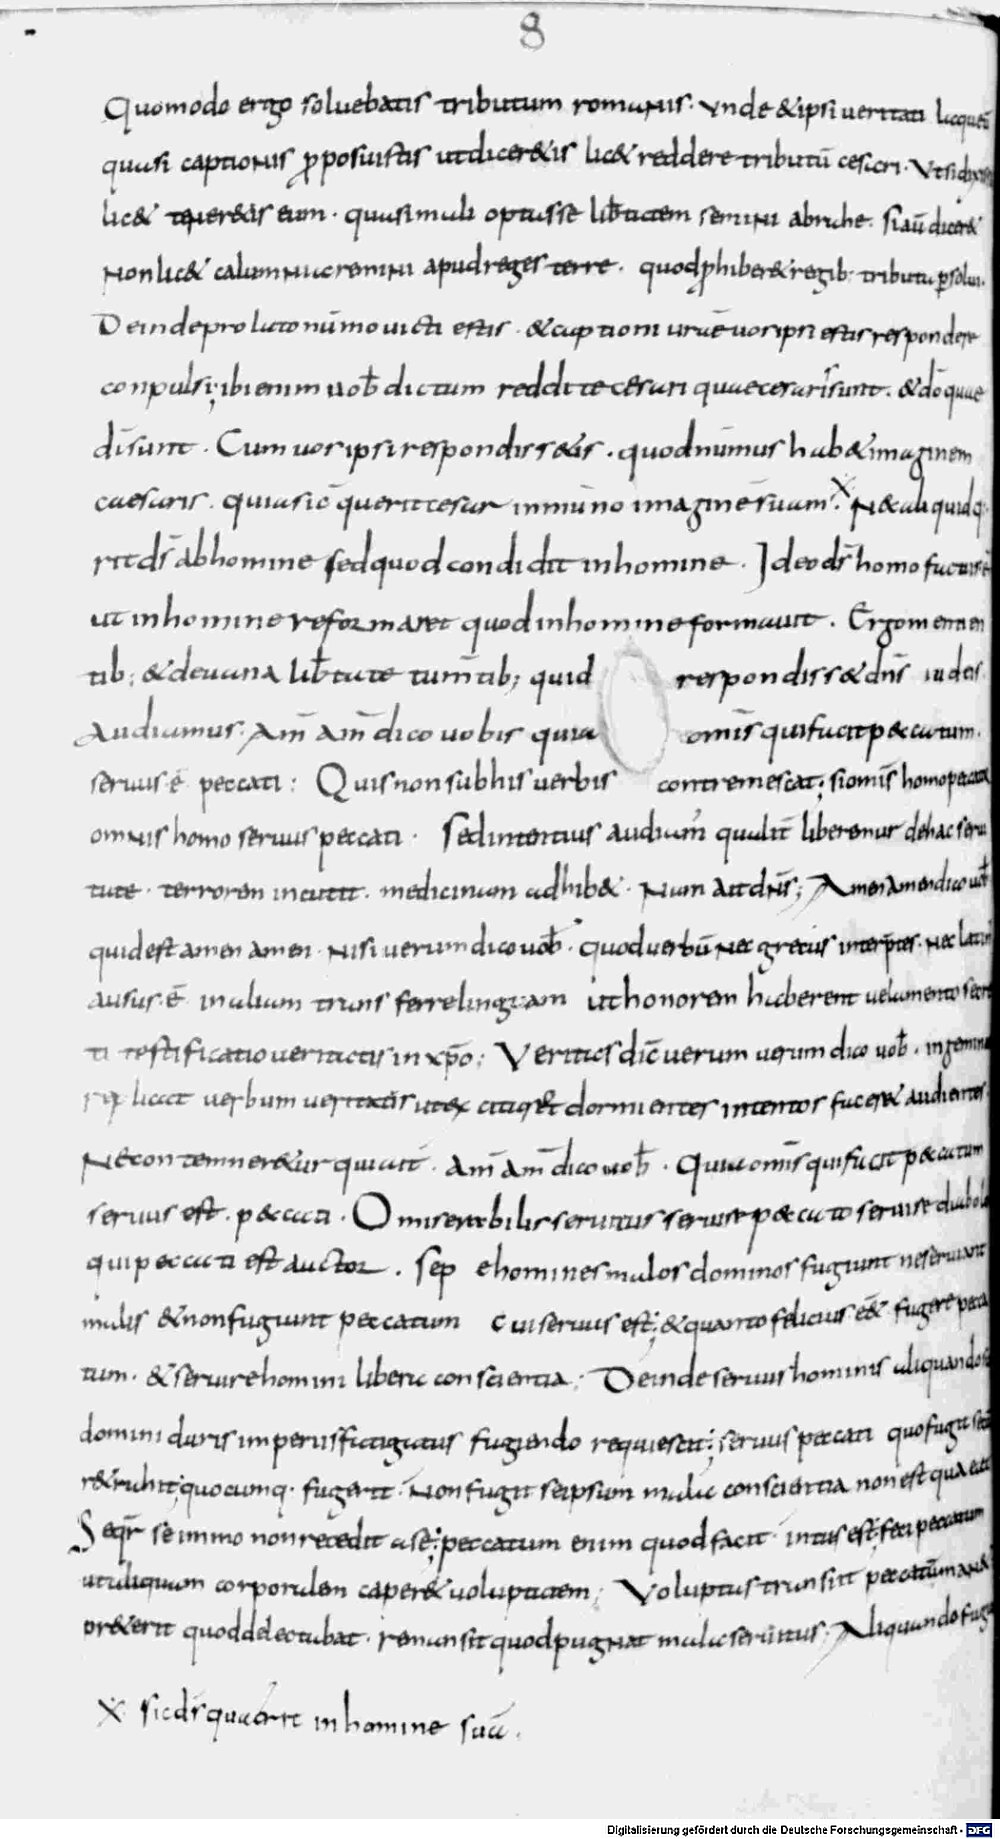 8
Quomodo ergo soluebatis tributum romanis. Vnde & ipsi ueritati laqueū
quasi captionis ꝓposuistis ut dicer& is lic& reddere tributū cesari. Vt si dix
lic& tener&is eum. quasi mali optasse lib̄tatem semini abrahe. Si aū dicer&
Non lic& calumniarentur apud reges terre. quod ꝓhiber& regib; tributū ꝑsolui.
Deinde prolato nūmo uicti estis. & captioni ur̄ae uos ipsi estis respondere
conpulsi; ibi enim uob̄ dictum reddite cesari quae cesaris sunt. & dō quae
dī sunt. Cum uos ipsi respondiss&is. quod nūmus hab& imaginem
caesaris. quia sic̄ querit cesar in nūmo imaginē suam. X N& aliquid q
rit ds̄ ab homine sed quod condidit in homine. Ideo ds̄ homo factus ē
ut in homine reformaret quod in homine formauit. Ergo mentien
tib; & de uana lib̄tate tum̄tib; quid respondiss& dn̄s iudeis.
Audiamus. Am̄ am̄ dico uobis quia omīs qui facit peccatum.
seruus ē peccati: Quis non sub his uerbis contremescat; si omīs homo peccator
omnis homo seruus peccati. Sed intentius audiam̄ qualit̄ liberemur de hac serui
tute. terrorem incutit. medicinam adhib&. Nam ait dn̄s; Amen amen dico uob̄
quid est amen amen. Nisi uerum dico uob̄. quod uerbū nec grecus interp̄tes. nec latin
ausus ē in alium transferre linguam ut honorem haberent uelamento secre
ti testificatio ueritatis in xp̄o; Veritas dic̄ uerum uerum dico uob̄. ingemina
replicat uerbum ueritatis ut excitaret dormientes intentos facer& audientes.
Ne contemner&ur quia ait. Am̄ am̄ dico uob̄. Quia omīs qui facit peccatum
seruus est. peccati. O miserabilis seruitus seruire peccato seruire diabolo
qui peccati est auctor. Sepe homines malos dominos fugiunt ne seruiant
malis & non fugiunt peccatum cui seruus est; & quanto felicius ēē& fugere pecca
tum. & seruire homini libera conscientia; Deinde seruus hominis aliquando si
domini duris imperiis fatigatus fugiendo requiescit; seruus peccati quo fugit secū
r& trahit; quocumq; fugerit. Non fugit seipsum mala conscientia non est qua eat
Seqr̄ se immo non recedit a se; peccatum enim quod facit intus est; feci peccatum
ut aliquam corporalem caper& uoluptatem; Voluptas transiit peccatum man&
pr&erit quod delectabat. remansit quod pugnat mala seruitus; Aliquando fugi
X sic ds̄ quaerit in homine suā.
Digitalisierung gefördert durch die Deutsche Forschungsgemeinschaft - DFG